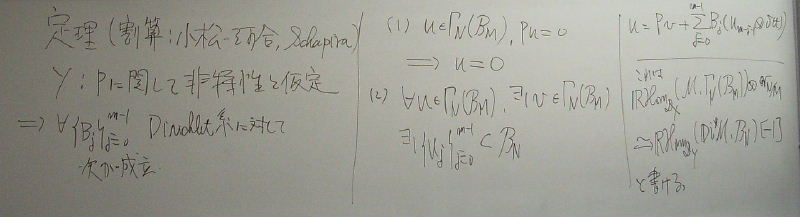 定理(割算:小松-河合, Schapira)
Y:Pに関して非特性と仮定
⇒ ∀{B_j}_{j=0}^{m-1} Dirichlet系に対して
次が成立
(1) u∈Γ_N(B_M), Pu=0
⇒ u=0
(2) ∀u∈Γ_N(B_M), ∃1 v∈Γ_N(B_M)
∃1{u_j}_{j=0}^{m-1} ⊂ B_N
u = Pv + Σ_{j=0}^{m-1} B_j(u_{m-j-1}⊗δ(t))
これは
RHom_{D_X}(M, Γ_N(B_M))⊗or_{N/M}
≃RHom_{D_Y}(Di*M, B_N)[-1]
と書ける。